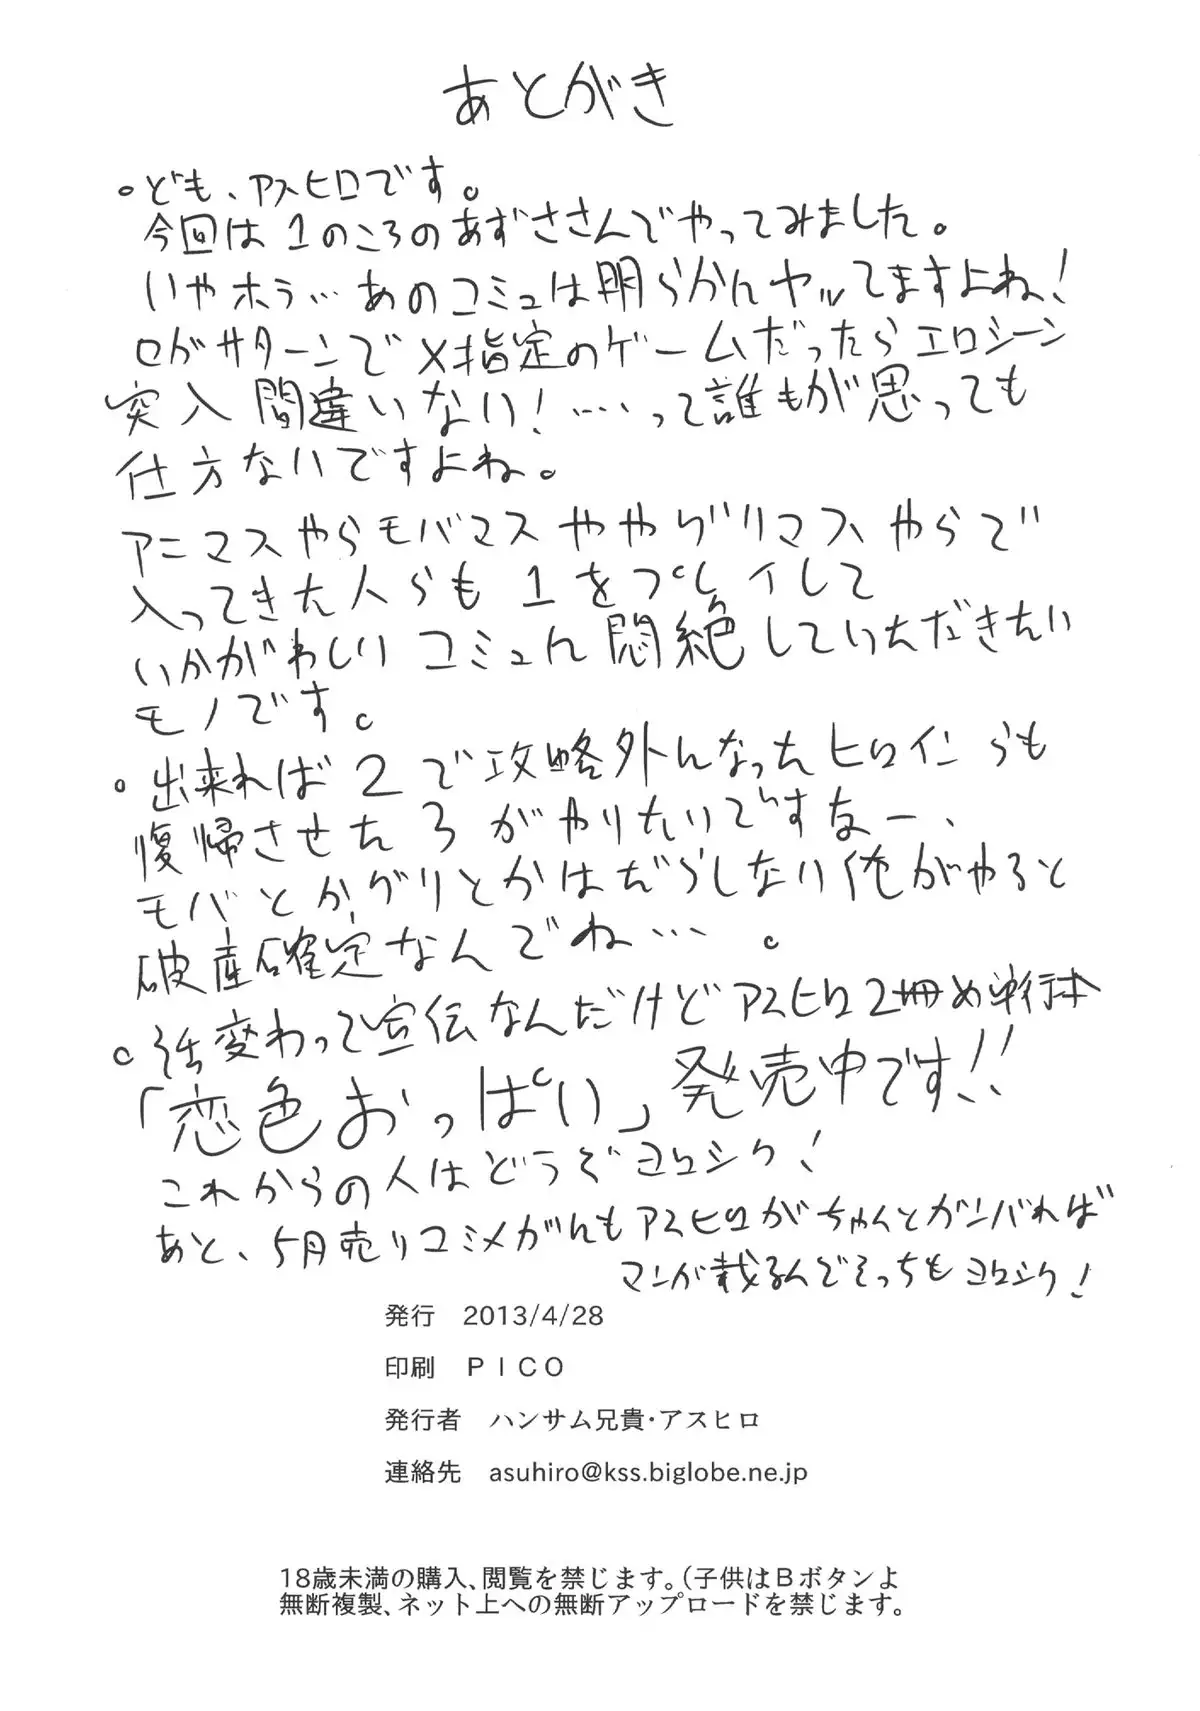 あとがき
。ども、アスヒロです。
今回は1のころのあずささんでやってみました。
いやホラ…あのコミュは明らかんヤッてますよね!
セガサターンでX指定のゲームだったらエロシーン
突入間違いない!……って誰もが思っても
仕方ないですよね。
アニマスやらモバマスややグリマスやらで
入ってきた人らも1をプレイして
いかがわしいコミュに悶絶していただきたい
モノです。
。出来れば2で攻略外んなったヒロインらも
復帰させた3がやりたいですなー、
モバとかグリとかはだらしない俺がやると
破産確定なんでね…。
。話変わって宣伝なんだけどアスヒロ2冊め単行本
「恋色おっぱい」発売中です!!
これからの人はどうぞヨロシク!
あと、5月売りコミメガんもアスヒロがちゃんとガンバれば
マンガ載るんでそっちもヨロシク!
発行 2013/4/28
印刷 PICO
発行者 ハンサム兄貴・アスヒロ
連絡先 asuhiro@kss.biglobe.ne.jp
18歳未満の購入、閲覧を禁じます。(子供はBボタンよ
無断複製、ネット上への無断アップロードを禁じます。